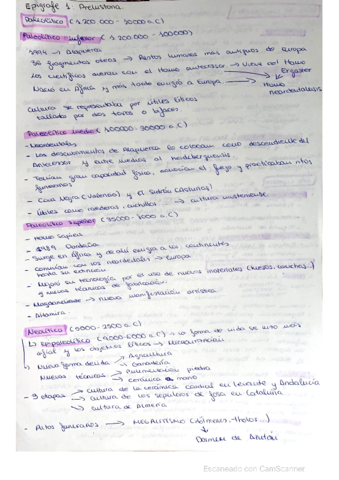 Epígrafe 1: Prehistoria
Paleolítico (1.200.000 - 3000 a.C)
Paleolítico inferior (1.200.000 - 100000)
1994 → Atapuerca
36 fragmentos óseos → Restos humanos más antiguos de Europa
Los científicos Homo antecessor → Homo Ergaster
Nació en África y más tarde emigró a Europa → Homo neardentalensis
Cultura representada por útiles líticos
tallado por dos caras o bifaces.
Paleolítico medio (100000- 35000 a.C)
- Neardentales
- Los descubrimientos de Atapuerca lo colocan como descendiente del
Antecessor y entre medias al heidelbergensis.
- Tenían gran capacidad física, conocían el fuego y practicaban ritos
funerarios
- Cova Negra (Valencia) y El Sidrón (Asturias)
- Útiles como raederas, cuchillos → cultura musteriense
Paleolítico superior (35000 - a.C)
- Homo Sapiens
-
- Surge en África y de ahí emigra a los continentes
- Convivían con los neardentales → Europa
hasta su extinción
- Mejora su tecnología por el uso de nuevos materiales (hueso, ...)
y nuevas técnicas de fabricación.
- Magdaleniense → nueva manifestación artística
- Altamira
Neolítico (5000 - 2500 a.C)
↳ Epipaleolítico a.C) → la forma de vida se hizo más
y los objetos líticos → Microlitismo
↳ Nueva forma de vida → Agricultura
→ Ganadería
Nuevas técnicas → Pulimentación piedra
→ cerámica a mano
- 3 etapas → cultura de la cerámica cardial en Levante y Andalucía
→ cultura de los sepulcros de fosa en Cataluña
→ cultura de Almería
- Ritos funerarios → MEGALITISMO (dólmenes, tholos...)
↓
Dolmen de
Escaneado con CamScanner